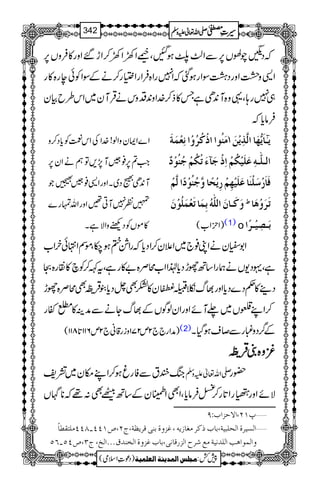 سیرتِ مصطفیٰ صلی اللہ تعالیٰ علیہ وسلم 342
کہ دیگیں چولھوں پر سے الٹ پلٹ ہوئیں، خیمے اکھڑ اکھڑ کر اڑ گئے اور کافروں پر
ایسی وحشت اور دہشت سوار ہوگئی کہ انہیں راہ فرار اختیار کرنے کے سوا کوئی چارہ کار
ہی نہیں رہا، یہی وہ آندھی ہے جس کا ذکر خداوند قدوس نے قرآن میں اس طرح بیان
فرمایا کہ
یٰۤاَیُّهَا الَّذِیْنَ اٰمَنُوا اذْكُرُوْا نِعْمَةَ
اللّٰهِ عَلَیْكُمْ اِذْ جَآءَتْكُمْ جُنُوْدٌ
فَاَرْسَلْنَا عَلَیْهِمْ رِیْحًا وَّ جُنُوْدًا لَّمْ
تَرَوْهَاؕ وَ كَانَ اللّٰهُ بِمَا تَعْمَلُوْنَ
بَصِیْرًا o (1) (احزاب)
اے ایمان والو! خدا کی اس نعمت کو یاد کرو
جب تم پر فوجیں آپڑیں تو ہم نے ان پر
آندھی بھیج دی۔ اور ایسی فوجیں بھیجیں جو
تمہیں نظر نہیں آتی تھیں اور اللہ تمہارے
کاموں کو دیکھنے والا ہے۔
ابوسفیان نے اپنی فوج میں اعلان کرا دیا کہ راشن ختم ہو چکا، موسم انتہائی خراب
ہے، یہودیوں نے ہمارا ساتھ چھوڑ دیا لہٰذا اب محاصرہ بے کار ہے، یہ کہہ کر کوچ کا نقارہ بجا
دینے کا حکم دے دیا اور بھاگ نکلا قبیلۂ غطفان کا لشکر بھی چل دیا بنو قریظہ بھی محاصرہ چھوڑ
کر اپنے قلعوں میں چلے آئے اور ان لوگوں کے بھاگ جانے سے مدینہ کا مطلع کفار
کے گرد و غبار سے صاف ہوگیا۔(2) (مدارج ج۲ ص۱۷۲ و زرقانی ج۲ ص۱۱۶ تا ۱۱۸)
غزوہ بنی قریظہ
حضور صلی اللہ تعالیٰ علیہ وسلم جنگ خندق سے فارغ ہو کر اپنے مکان میں تشریف
لائے اور ہتھیار اتار کر غسل فرمایا، ابھی اطمینان کے ساتھ بیٹھے بھی نہ تھے کہ ناگہاں
...پ ۲۱، الاحزاب:۹
...السیرة الحلبیة، باب ذکر مغازیه، غزوة بنی قریظة، ج۲، ص۴۴۱۔۴۴۸ ملتقطاً
والمواهب اللدنیة مع شرح الزرقانی، باب غزوة الخندق...الخ، ج۳، ص۵۴۔۵۶
پیش کش: مجلس المدینة العلمیة (دعوتِ اسلامی)